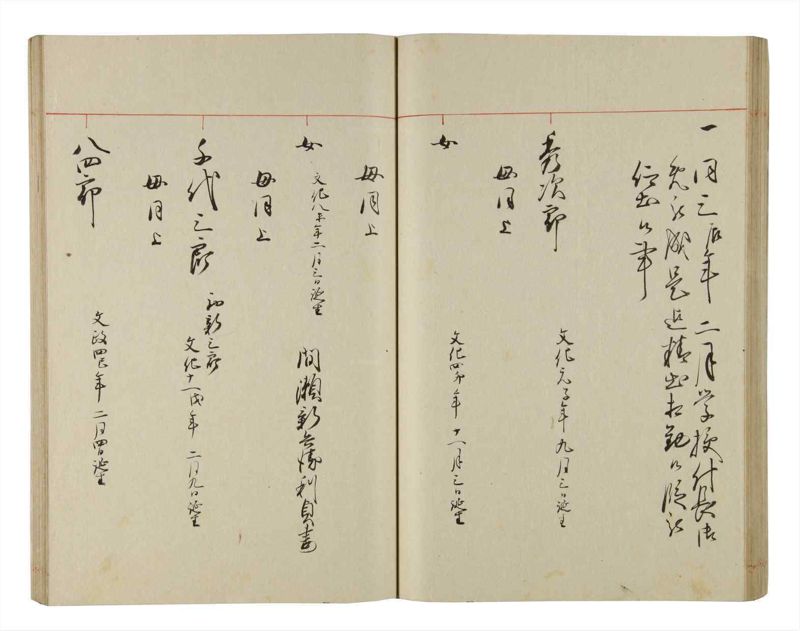 一 同三辰年 二月学校付長御
免被成是迄精出相勤候段被
仰出候事
秀次郎 文化元子年 九月三日誕生
母同上
女 文化四卯年 十一月三日誕生
母同上
女 文化八未年二月三日誕生 間瀬新兵衛利貞妻
母同上
千代三郎 初新三郎
文化十一戌年 二月九日誕生
母同上
八四郎 文政四巳年 二月四日誕生